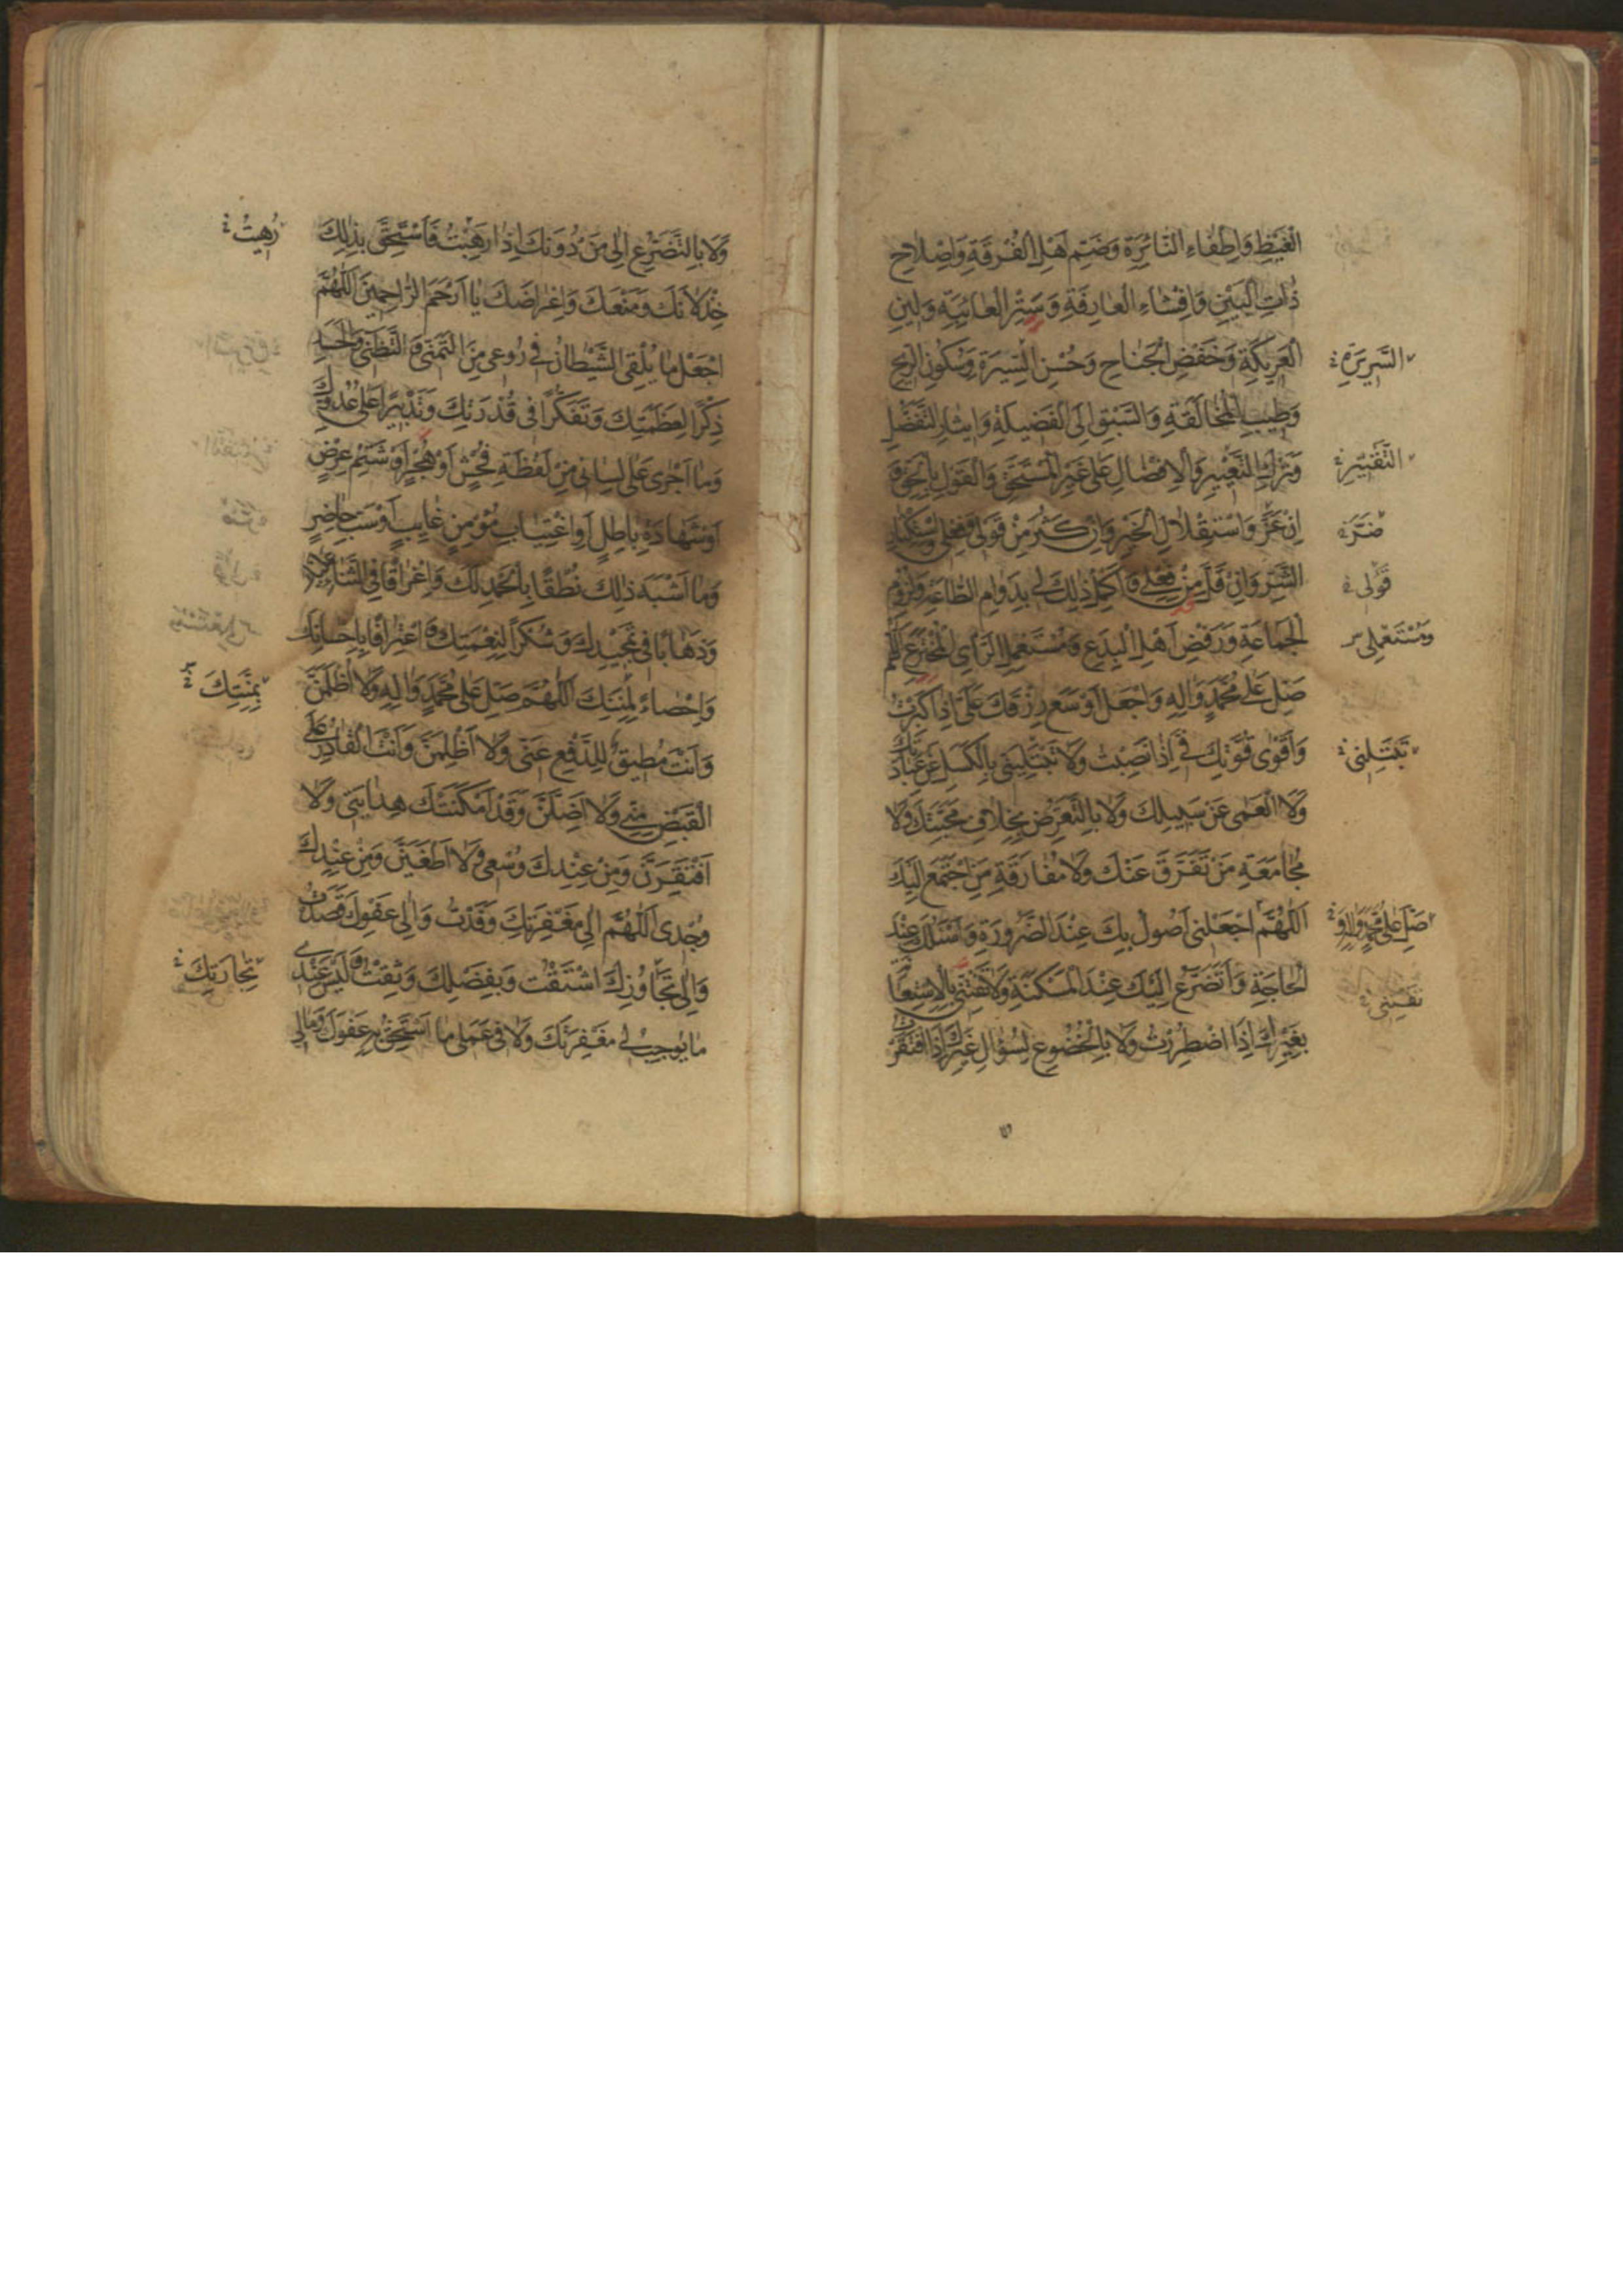 الْغَيْظِ وَاِطْفَاءِ النَّائِرَةِ وَضَمِّ اَهْلِ الْفُرْقَةِ وَاِصْلَاحِ
ذَاتِ الْبَيْنِ وَاِفْشَاءِ الْعَارِفَةِ وَسَتْرِ الْعَائِبَةِ وَلِينِ
الْعَرِيكَةِ وَخَفْضِ الْجَنَاحِ وَحُسْنِ السِّيرَةِ وَسُكُونِ الرِّيحِ
السَّرِيرَةِ
وَطِيبِ الْمُخَالَقَةِ وَالسَّبْقِ اِلَى الْفَضِيلَةِ وَاِيثَارِ التَّفَضُّلِ
وَتَرْكِ التَّعْيِيرِ وَالْاِفْضَالِ عَلَى غَيْرِ الْمُسْتَحِقِّ وَالْقَوْلِ بِالْحَقِّ وَ
التَّقْتِيرِ
اِنْ عَزَّ وَاسْتِقْلَالِ الْخَيْرِ وَاِنْ كَثُرَ مِنْ قَوْلِي وَفِعْلِي وَاسْتِكْثَارِ
قَوْلِي
الشَّرِّ وَاِنْ قَلَّ مِنْ فِعْلِي وَ اَكْمِلْ ذٰلِكَ لِي بِدَوَامِ الطَّاعَةِ وَلُزُومِ
الْجَمَاعَةِ وَرَفْضِ اَهْلِ الْبِدَعِ وَمُسْتَعْمِلِ الرَّأْيِ الْمُخْتَرَعِ اَللّٰهُمَّ
وَمُسْتَعْمِلِي
صَلِّ عَلَى مُحَمَّدٍ وَاٰلِهِ وَاجْعَلْ اَوْسَعَ رِزْقِكَ عَلَيَّ اِذَا كَبِرْتُ
وَاَقْوٰى قُوَّتِكَ فِيَّ اِذَا نَصِبْتُ وَلَا تَبْتَلِيَنِّي بِالْكَسَلِ عَنْ عِبَادَتِكَ
تَبْتَلِنِي
وَلَا الْعَمٰى عَنْ سَبِيلِكَ وَلَا بِالتَّعَرُّضِ بِخِلَافِ مَحَبَّتِكَ وَلَا
مُجَامَعَةِ مَنْ تَفَرَّقَ عَنْكَ وَلَا مُفَارَقَةِ مَنِ اجْتَمَعَ اِلَيْكَ
اَللّٰهُمَّ اجْعَلْنِي اَصُولُ بِكَ عِنْدَ الضَّرُورَةِ وَاَسْئَلُكَ عِنْدَ
صَلِّ عَلَى مُحَمَّدٍ وَاٰلِهِ وَ
الْحَاجَةِ وَاَتَضَرَّعُ اِلَيْكَ عِنْدَ الْمَسْكَنَةِ وَلَا تَفْتِنِّي بِالْاِسْتِعَانَةِ
تَفْتِنِّي
بِغَيْرِكَ اِذَا اضْطُرِرْتُ وَلَا بِالْخُضُوعِ لِسُؤَالِ غَيْرِكَ اِذَا افْتَقَرْتُ
وَلَا بِالتَّضَرُّعِ اِلٰى مَنْ دُونَكَ اِذَا رَهِبْتُ فَاَسْتَحِقَّ بِذٰلِكَ
رُهِبْتُ
خِذْلَانَكَ وَمَنْعَكَ وَاِعْرَاضَكَ يَا اَرْحَمَ الرَّاحِمِينَ اَللّٰهُمَّ
اجْعَلْ مَا يُلْقِي الشَّيْطَانُ فِي رُوعِي مِنَ التَّمَنِّي وَالتَّظَنِّي وَالْحَسَدِ
ذِكْرًا لِعَظَمَتِكَ وَتَفَكُّرًا فِي قُدْرَتِكَ وَتَدْبِيرًا عَلٰى عَدُوِّكَ
وَمَا اَجْرٰى عَلٰى لِسَانِي مِنْ لَفْظَةِ فُحْشٍ اَوْ هُجْرٍ اَوْ شَتْمِ عِرْضٍ
اَوْ شَهَادَةِ بَاطِلٍ اَوِ اغْتِيَابِ مُؤْمِنٍ غَايِبٍ اَوْ سَبِّ حَاضِرٍ
وَمَا اَشْبَهَ ذٰلِكَ نُطْقًا بِالْحَمْدِ لَكَ وَاِغْرَاقًا فِي الثَّنَاءِ عَلَيْكَ
وَذَهَابًا فِي تَمْجِيدِكَ وَشُكْرًا لِنِعْمَتِكَ وَ اعْتِرَافًا بِاِحْسَانِكَ
وَاِحْصَاءً لِمِنَنِكَ اَللّٰهُمَّ صَلِّ عَلٰى مُحَمَّدٍ وَاٰلِهِ وَلَا اُظْلَمَنَّ
بِمِنَّتِكَ
وَاَنْتَ مُطِيقٌ لِلدَّفْعِ عَنِّي وَلَا اَظْلِمَنَّ وَاَنْتَ الْقَادِرُ عَلَى
الْقَبْضِ مِنِّي وَلَا اَضِلَّنَّ وَقَدْ اَمْكَنَتْكَ هِدَايَتِي وَلَا
اَفْتَقِرَنَّ وَمِنْ عِنْدِكَ وُسْعِي وَلَا اَطْغَيَنَّ وَمِنْ عِنْدِكَ
وُجْدِي اَللّٰهُمَّ اِلٰى مَغْفِرَتِكَ وَفَدْتُ وَاِلٰى عَفْوِكَ قَصَدْتُ
وَاِلٰى تَجَاوُزِكَ اشْتَقْتُ وَبِفَضْلِكَ وَثِقْتُ وَ لَيْسَ عِنْدِي
مَا يُوجِبُ لِي مَغْفِرَتَكَ وَلَا فِي عَمَلِي مَا اَسْتَحِقُّ بِهِ عَفْوَكَ وَمَا لِي